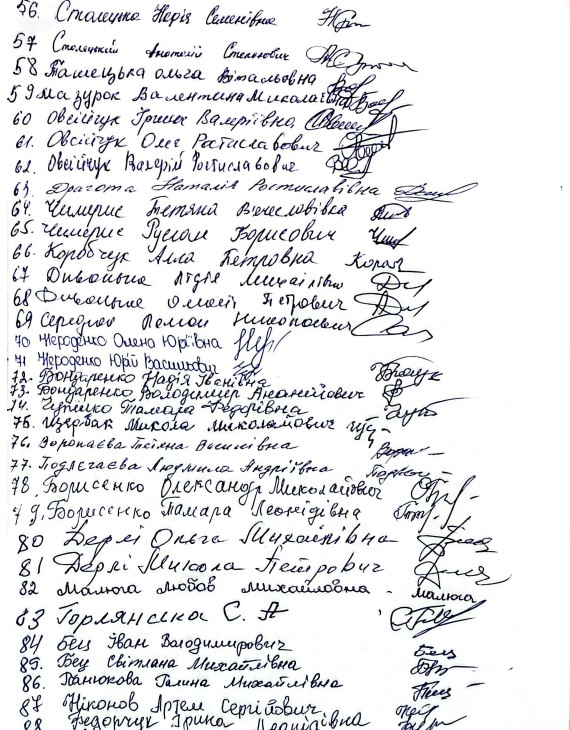 56. Столецка Надія Семенівна
57 Столецкий Анатолій Степанович
58 Ташецька Ольга Вітальовна
59 Мазурок Валентина Миколаївна
60 Овсійчук Ірина Валеріївна
61. Овсійчук Олег Ростиславович
62. Овсійчук Валерій Ростиславович
63. Драгота Наталія Ростиславівна
64. Чимерис Тетяна Вячеславівка
65. Чимерис Руслан Борисович
66. Коробчук Алла Петровна Короб
67 Лідія Михайлівн
68 Петрович
69 Середюк Роман
70 Нероденко Олена Юріївна
71 Нероденко Юрій Васильович
72. Бондаренко Надія Іванівна
73. Бондаренко Володимир Анонійович
74. Тамара Федорівна
75. Щербак Микола Миколайович
76. Воропаєва Тетяна Василівна
77. Подлєгаєва Людмила Андріївна
78. Борисенко Олександр Миколайович
79. Борисенко Тамара Леонідівна
80 Дерлі Ольга Михайлівна
81 Дерлі Микола Петрович
82 Малюга Любов Михайловна - Малюга
83 Горлянська С. А
84 Бец Іван Володимирович Бец
85. Бец Світлана Михайлівна
86. Панюкова Галина Михайлівна
87 Ніконов Артем Сергійович
88 Федорчук Ірина Леонідівна